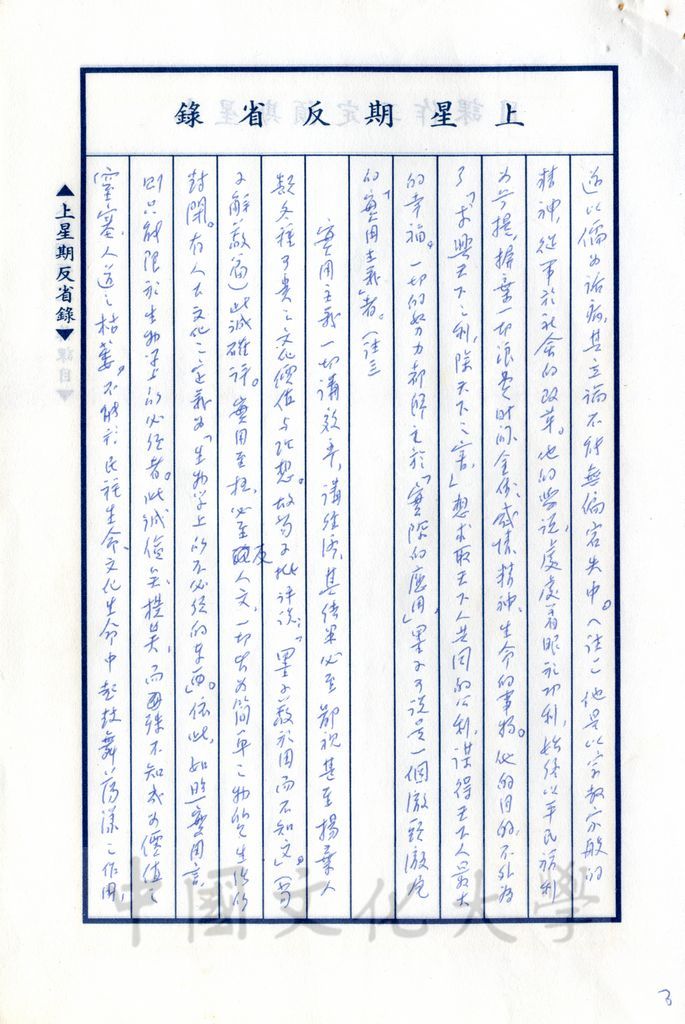 上星期反省錄
遂以儒為詬病，其立論不能無偏宕失中。（註二）他是以宗教家般的
精神，從事於社會的改革。他的學說，處處著眼於功利，始終以平民福利
為前提，摒棄一切浪費時間、金錢、感情、精神、生命的事物。他的目的，不外為
了「求興天下之利，除天下之害」，想求取天下人共同的公利，謀得天下人最大
的幸福。一切的努力都歸之於「實際的應用」，墨子可說是一個澈頭澈尾
的「實用主義」者。（註三
實用主義一切講效率，講經濟，其結果必至鄙視甚至揚棄人
類各種可貴之文化價值與理想。故荀子批評說：「墨子蔽於用而不知文」。（荀
子解蔽篇）此誠確評。實用至極，必至反人文，一切步為簡單之物的生活的
封閉。有人云文化之定義為「生物學上的不必須的東西」。依此，如照實用言，
則只能限於生物學上的必須者。此誠儉矣，樸美，而殊不知成為價值之
窒塞，人道之枯萎。不能於民族生命、文化生命中起鼓舞蕩漾之作用，
▲上星期反省錄▼
中國文化大學
3